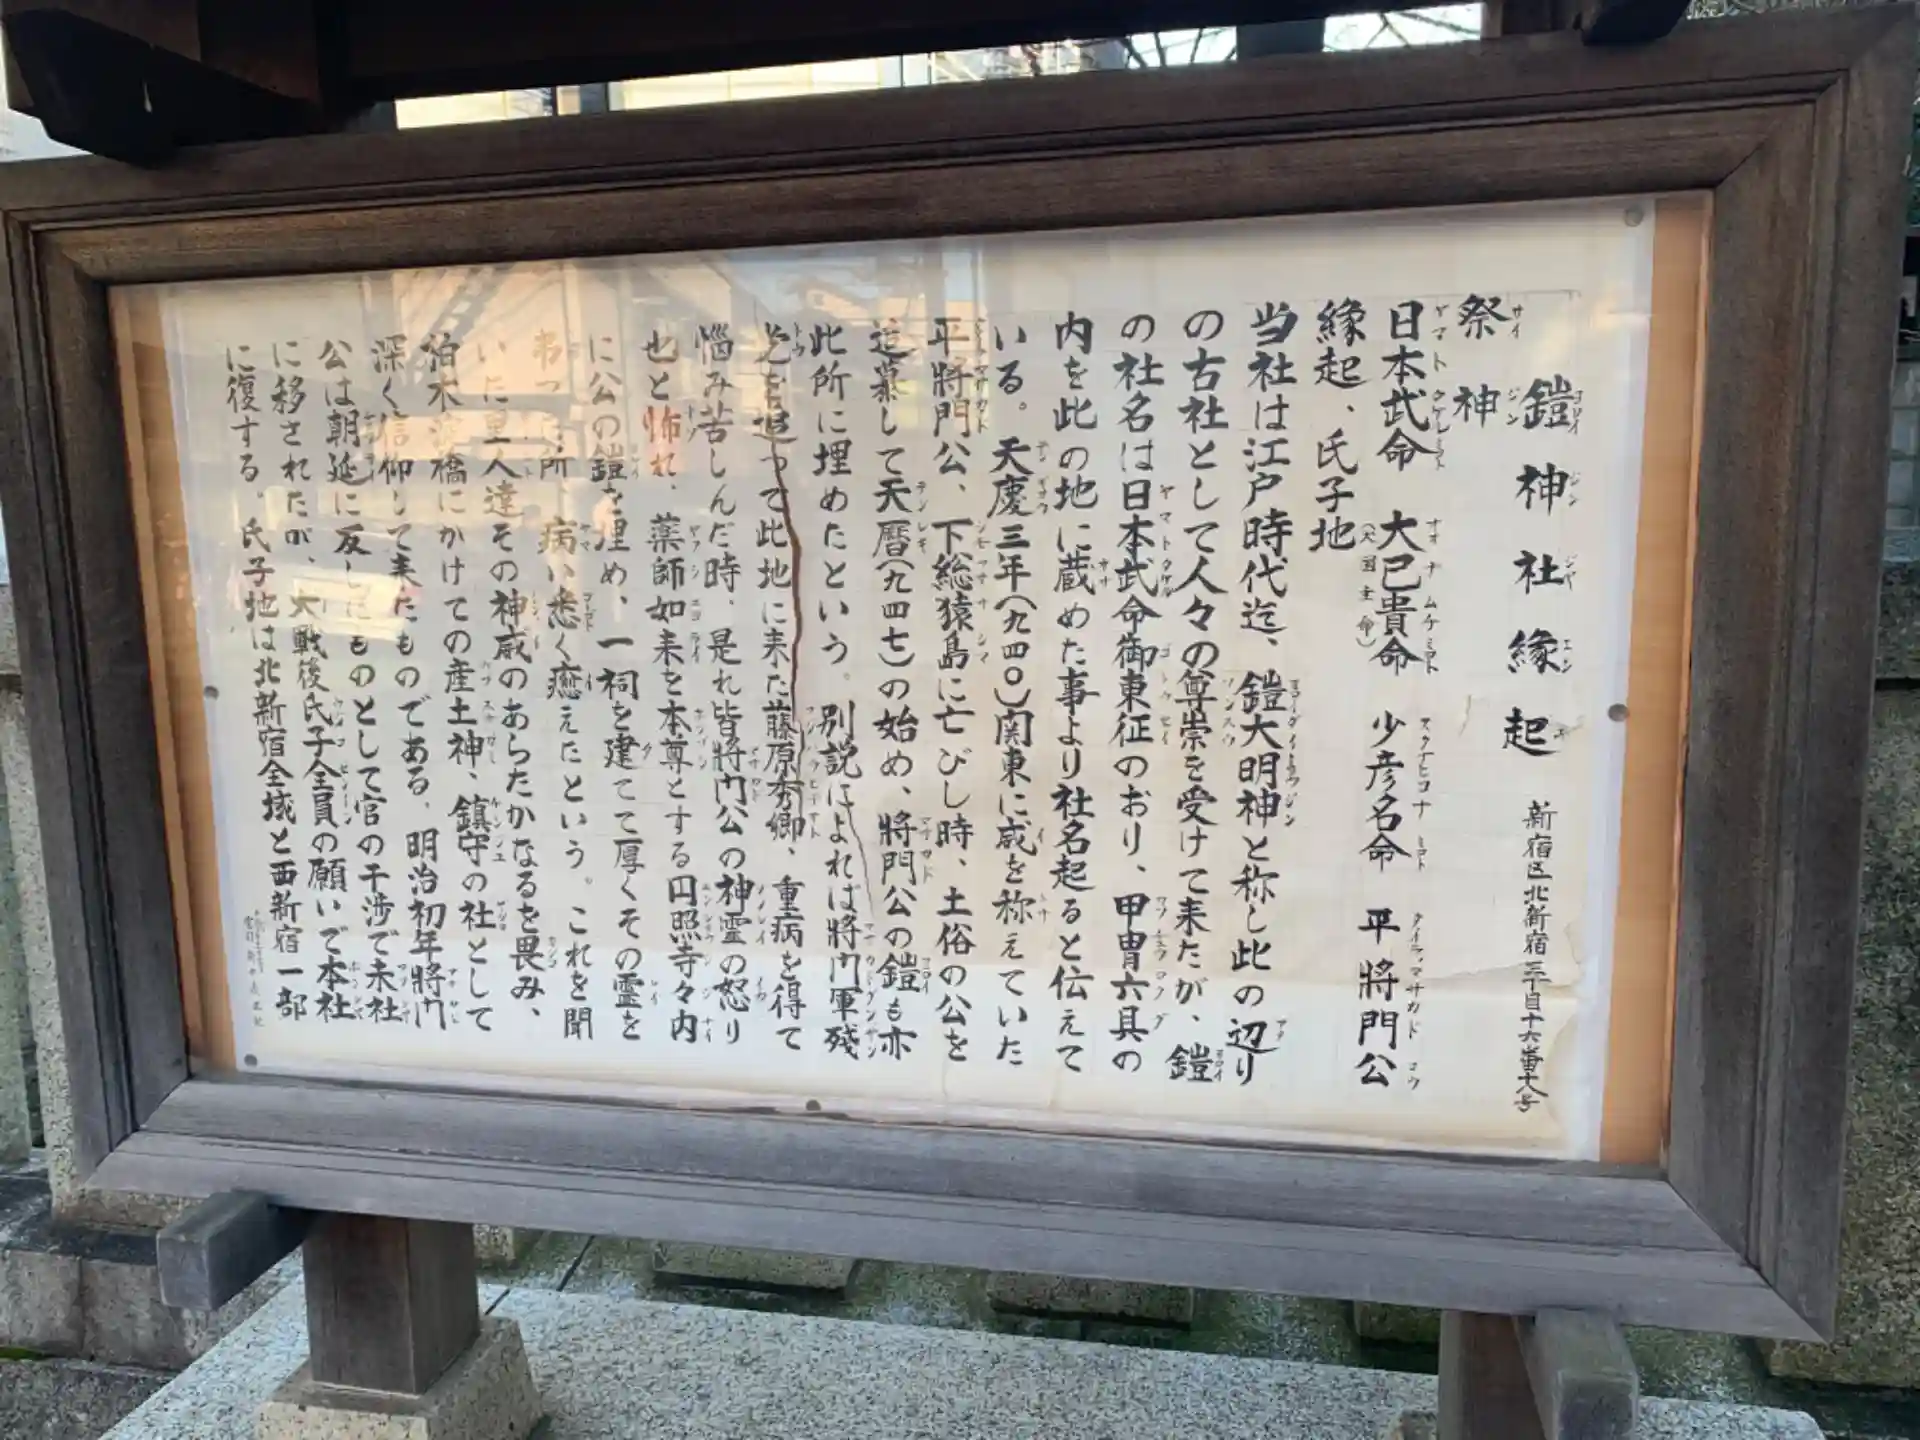 鎧神社縁起 新宿区北新宿三丁目十六番十八号
祭神
日本武命 大己貴命(大国主命) 少彦名命 平將門公
縁起、氏子地
当社は江戸時代迄、鎧大明神と称し此の辺り
の古社として人々の尊崇を受けて来たが、鎧
の社名は日本武命御東征のおり、甲冑六具の
内を此の地に蔵めた事より社名起ると伝えて
いる。天慶三年(九四〇)関東に威を称えていた
平將門公、下総猿島に亡びし時、土俗の公を
追慕して天暦(九四七)の始め、將門公の鎧も亦
此所に埋めたという。別説によれば將門軍残
党を追って此地に来た藤原秀郷、重病を得て
悩み苦しんだ時、是れ皆將門公の神霊の怒り
也と怖れ、薬師如来を本尊とする円照寺々内
に公の鎧を埋め、一祠を建てて厚くその霊を
弔った所、病い悉く癒えたという。これを聞
いた里人達その神威のあらたかなるを畏み、
柏木淀橋にかけての産土神、鎮守の社として
深く信仰して来たものである。明治初年將門
公は朝廷に反したものとして官の干渉で末社
に移されたが、大戦後氏子全員の願いで本社
に復する。氏子地は北新宿全域と西新宿一部